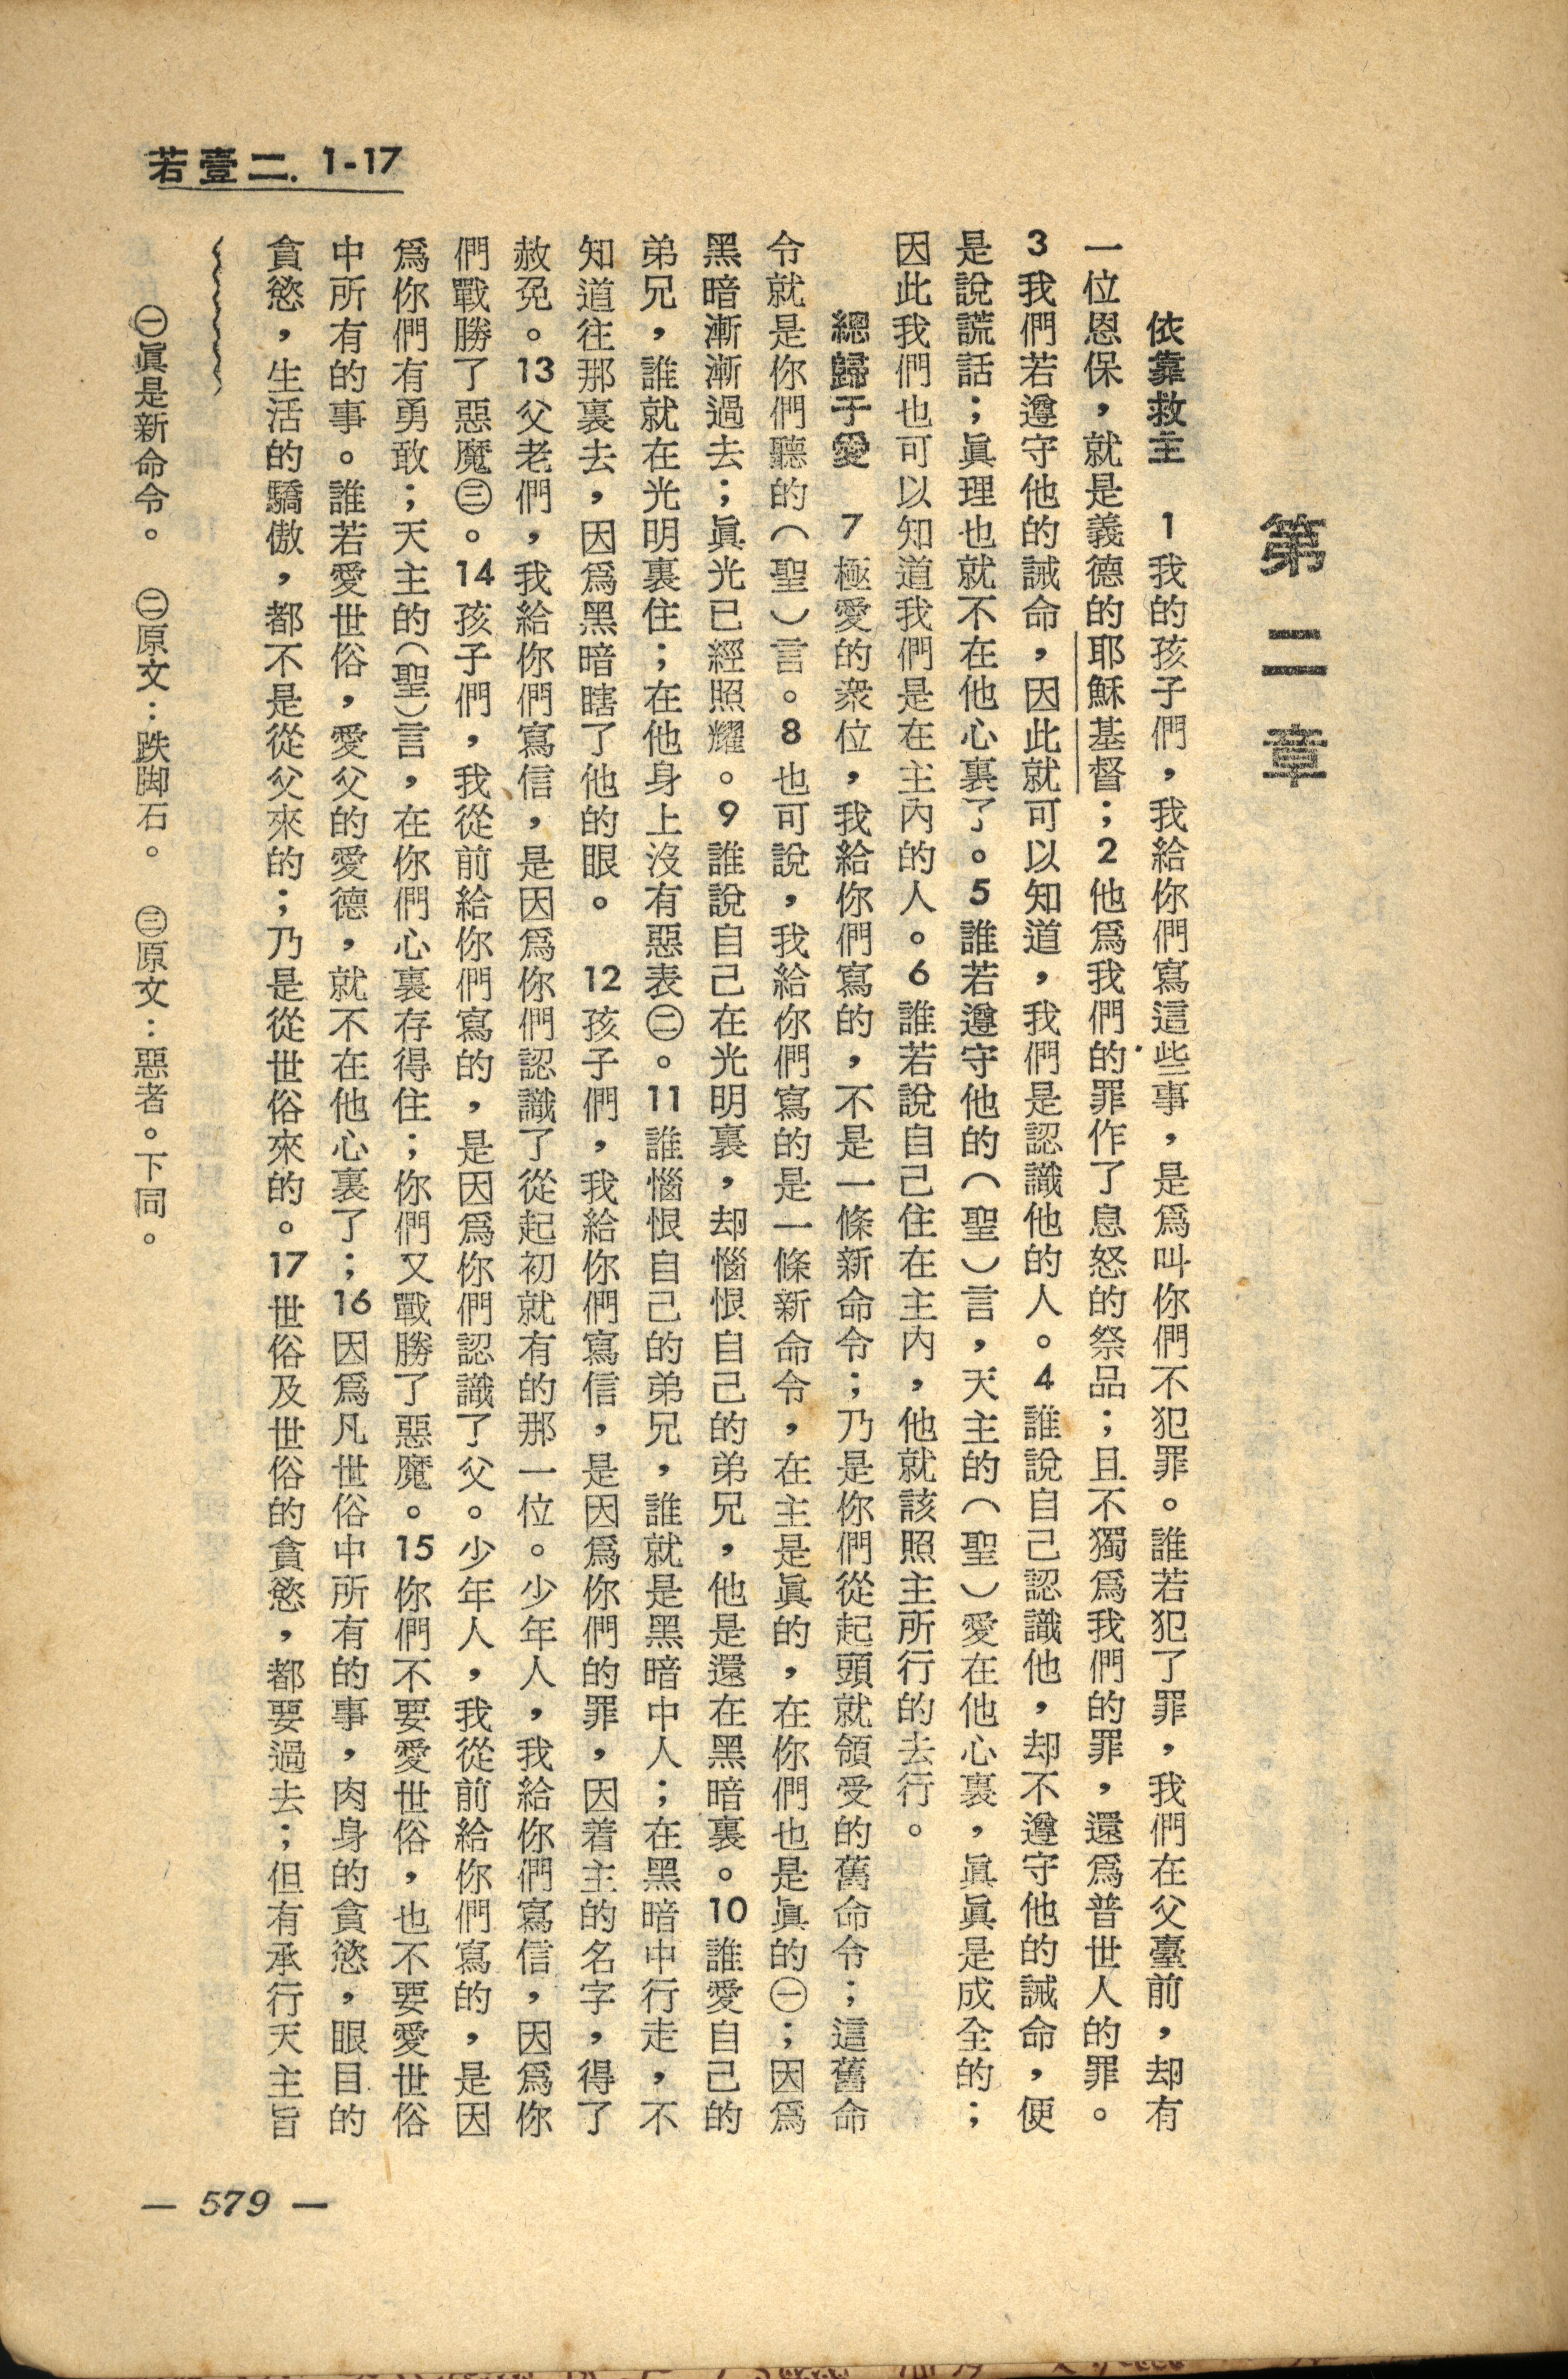 若壹二. 1-17
第二章
依靠救主　1我的孩子們，我給你們寫這些事，是爲叫你們不犯罪。誰若犯了罪，我們在父臺前，却有
一位恩保，就是義德的耶穌基督；2他爲我們的罪作了息怒的祭品；且不獨爲我們的罪，還爲普世人的罪。
3我們若遵守他的誡命，因此就可以知道，我們是認識他的人。4誰說自己認識他，却不遵守他的誡命，便
是說謊話；眞理也就不在他心裏了。5誰若遵守他的（聖）言，天主的（聖）愛在他心裏，眞眞是成全的；
因此我們也可以知道我們是在主內的人。6誰若說自己住在主內，他就該照主所行的去行。
總歸于愛　7極愛的衆位，我給你們寫的，不是一條新命令；乃是你們從起頭就領受的舊命令；這舊命
令就是你們聽的（聖）言。8也可說，我給你們寫的是一條新命令，在主是眞的，在你們也是眞的㊀；因爲
黑暗漸漸過去；眞光已經照耀。9誰說自己在光明裏，却惱恨自己的弟兄，他是還在黑暗裏。10誰愛自己的
弟兄，誰就在光明裏住；在他身上沒有惡表㊁。11誰惱恨自己的弟兄，誰就是黑暗中人；在黑暗中行走，不
知道往那裏去，因爲黑暗瞎了他的眼。　12孩子們，我給你們寫信，是因爲你們的罪，因着主的名字，得了
赦免。13父老們，我給你們寫信，是因爲你們認識了從起初就有的那一位。少年人，我給你們寫信，因爲你
們戰勝了惡魔㊂。14孩子們，我從前給你們寫的，是因爲你們認識了父。少年人，我從前給你們寫的，是因
爲你們有勇敢；天主的（聖）言，在你們心裏存得住；你們又戰勝了惡魔。15你們不要愛世俗，也不要愛世俗
中所有的事。誰若愛世俗，愛父的愛德，就不在他心裏了；16因爲凡世俗中所有的事，肉身的貪慾，眼目的
貪慾，生活的驕傲，都不是從父來的；乃是從世俗來的。17世俗及世俗的貪慾，都要過去；但有承行天主旨
㊀眞是新命令。　㊁原文：跌脚石。　㊂原文：惡者。下同。
— 579 —